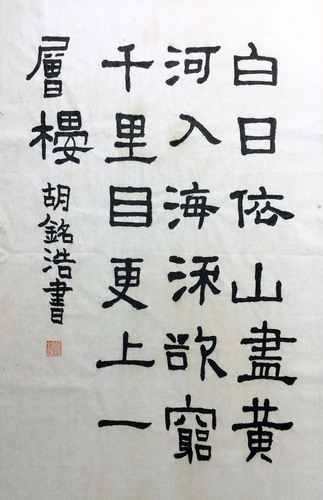 白日依山盡黃
河入海流欲窮
千里目更上一
層樓
胡銘浩書